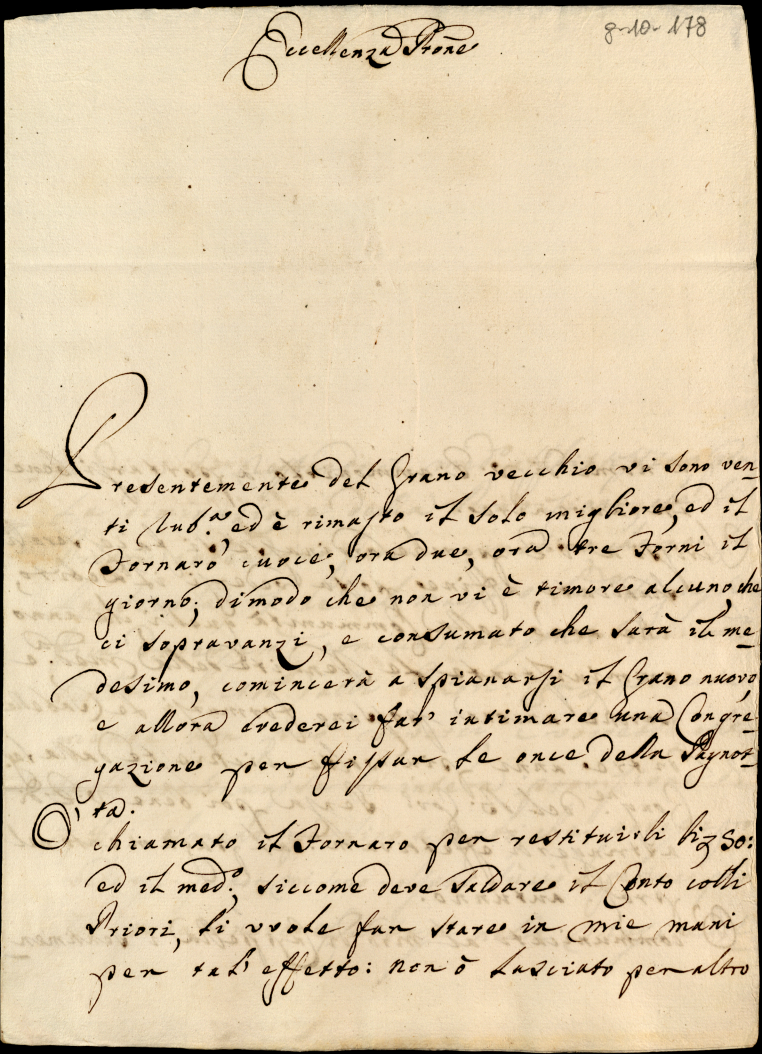 8-10-178
Eccellenza Prone
Presentemente del Grano vecchio vi sono ven-
ti Rub.a, ed è rimasto il solo migliore, ed il
Fornaro cuoce, ora due, ora tre Forni il
giorno; dimodo che non vi è timore alcuno, che
ci sopravanzi, e consumato che sarà il me-
desimo, comincerà a spianarsi il Grano nuovo,
e allora crederei far intimare una Congre-
gazione per fissar le once della Pagnot-
ta.
O' chiamato il Fornaro per restituirli 50:
ed il med.o, siccome deve saldare il Conto colli
Priori, li vuole far stare in mie mani
per tal' effetto: non ò lasciato per altro